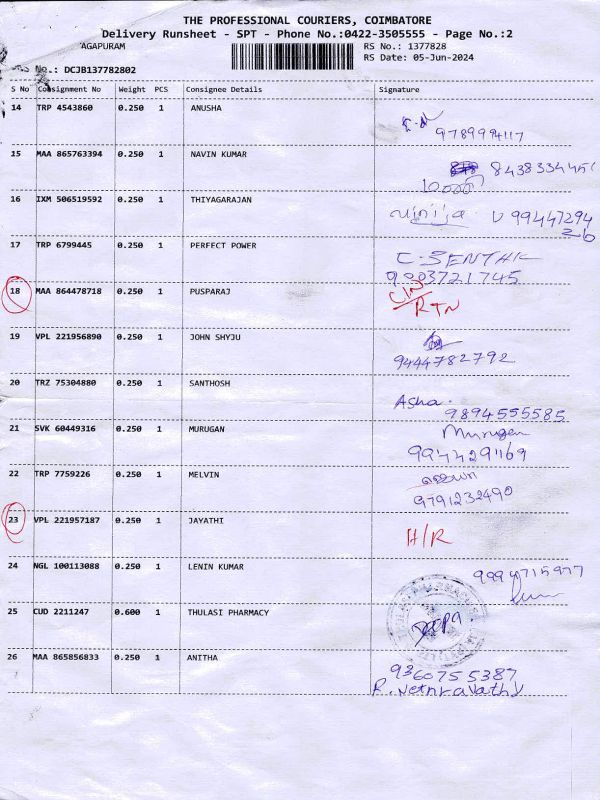 THE PROFESSIONAL COURIERS, COIMBATORE
Delivery Runsheet - SPT - Phone No.:0422-3505555 - Page No.:2
AGAPURAM
RS No.: 1377828
RS Date: 05-Jun-2024
No.: DCJB137782802
S No Consignment No Weight PCS Consignee Details Signature
14 TRP 4543860 0.250 1 ANUSHA
9789994117
15 MAA 865763394 0.250 1 NAVIN KUMAR
843833445
16 IXM 506519592 0.250 1 THIYAGARAJAN
99447294
26
17 TRP 6799445 0.250 1 PERFECT POWER
C. SENTHIL
9003721745
18 MAA 864478718 0.250 1 PUSPARAJ
RTN
19 VPL 221956890 0.250 1 JOHN SHYJU
9444782792
20 TRZ 75304880 0.250 1 SANTHOSH
Asha.
9894555585
21 SVK 60449316 0.250 1 MURUGAN
Murugan
9944291169
22 TRP 7759226 0.250 1 MELVIN
9791232490
23 VPL 221957187 0.250 1 JAYATHI
H/R
24 NGL 100113088 0.250 1 LENIN KUMAR
25 CUD 2211247 0.600 1 THULASI PHARMACY
26 MAA 865856833 0.250 1 ANITHA
9360755387
R. Nethravathy